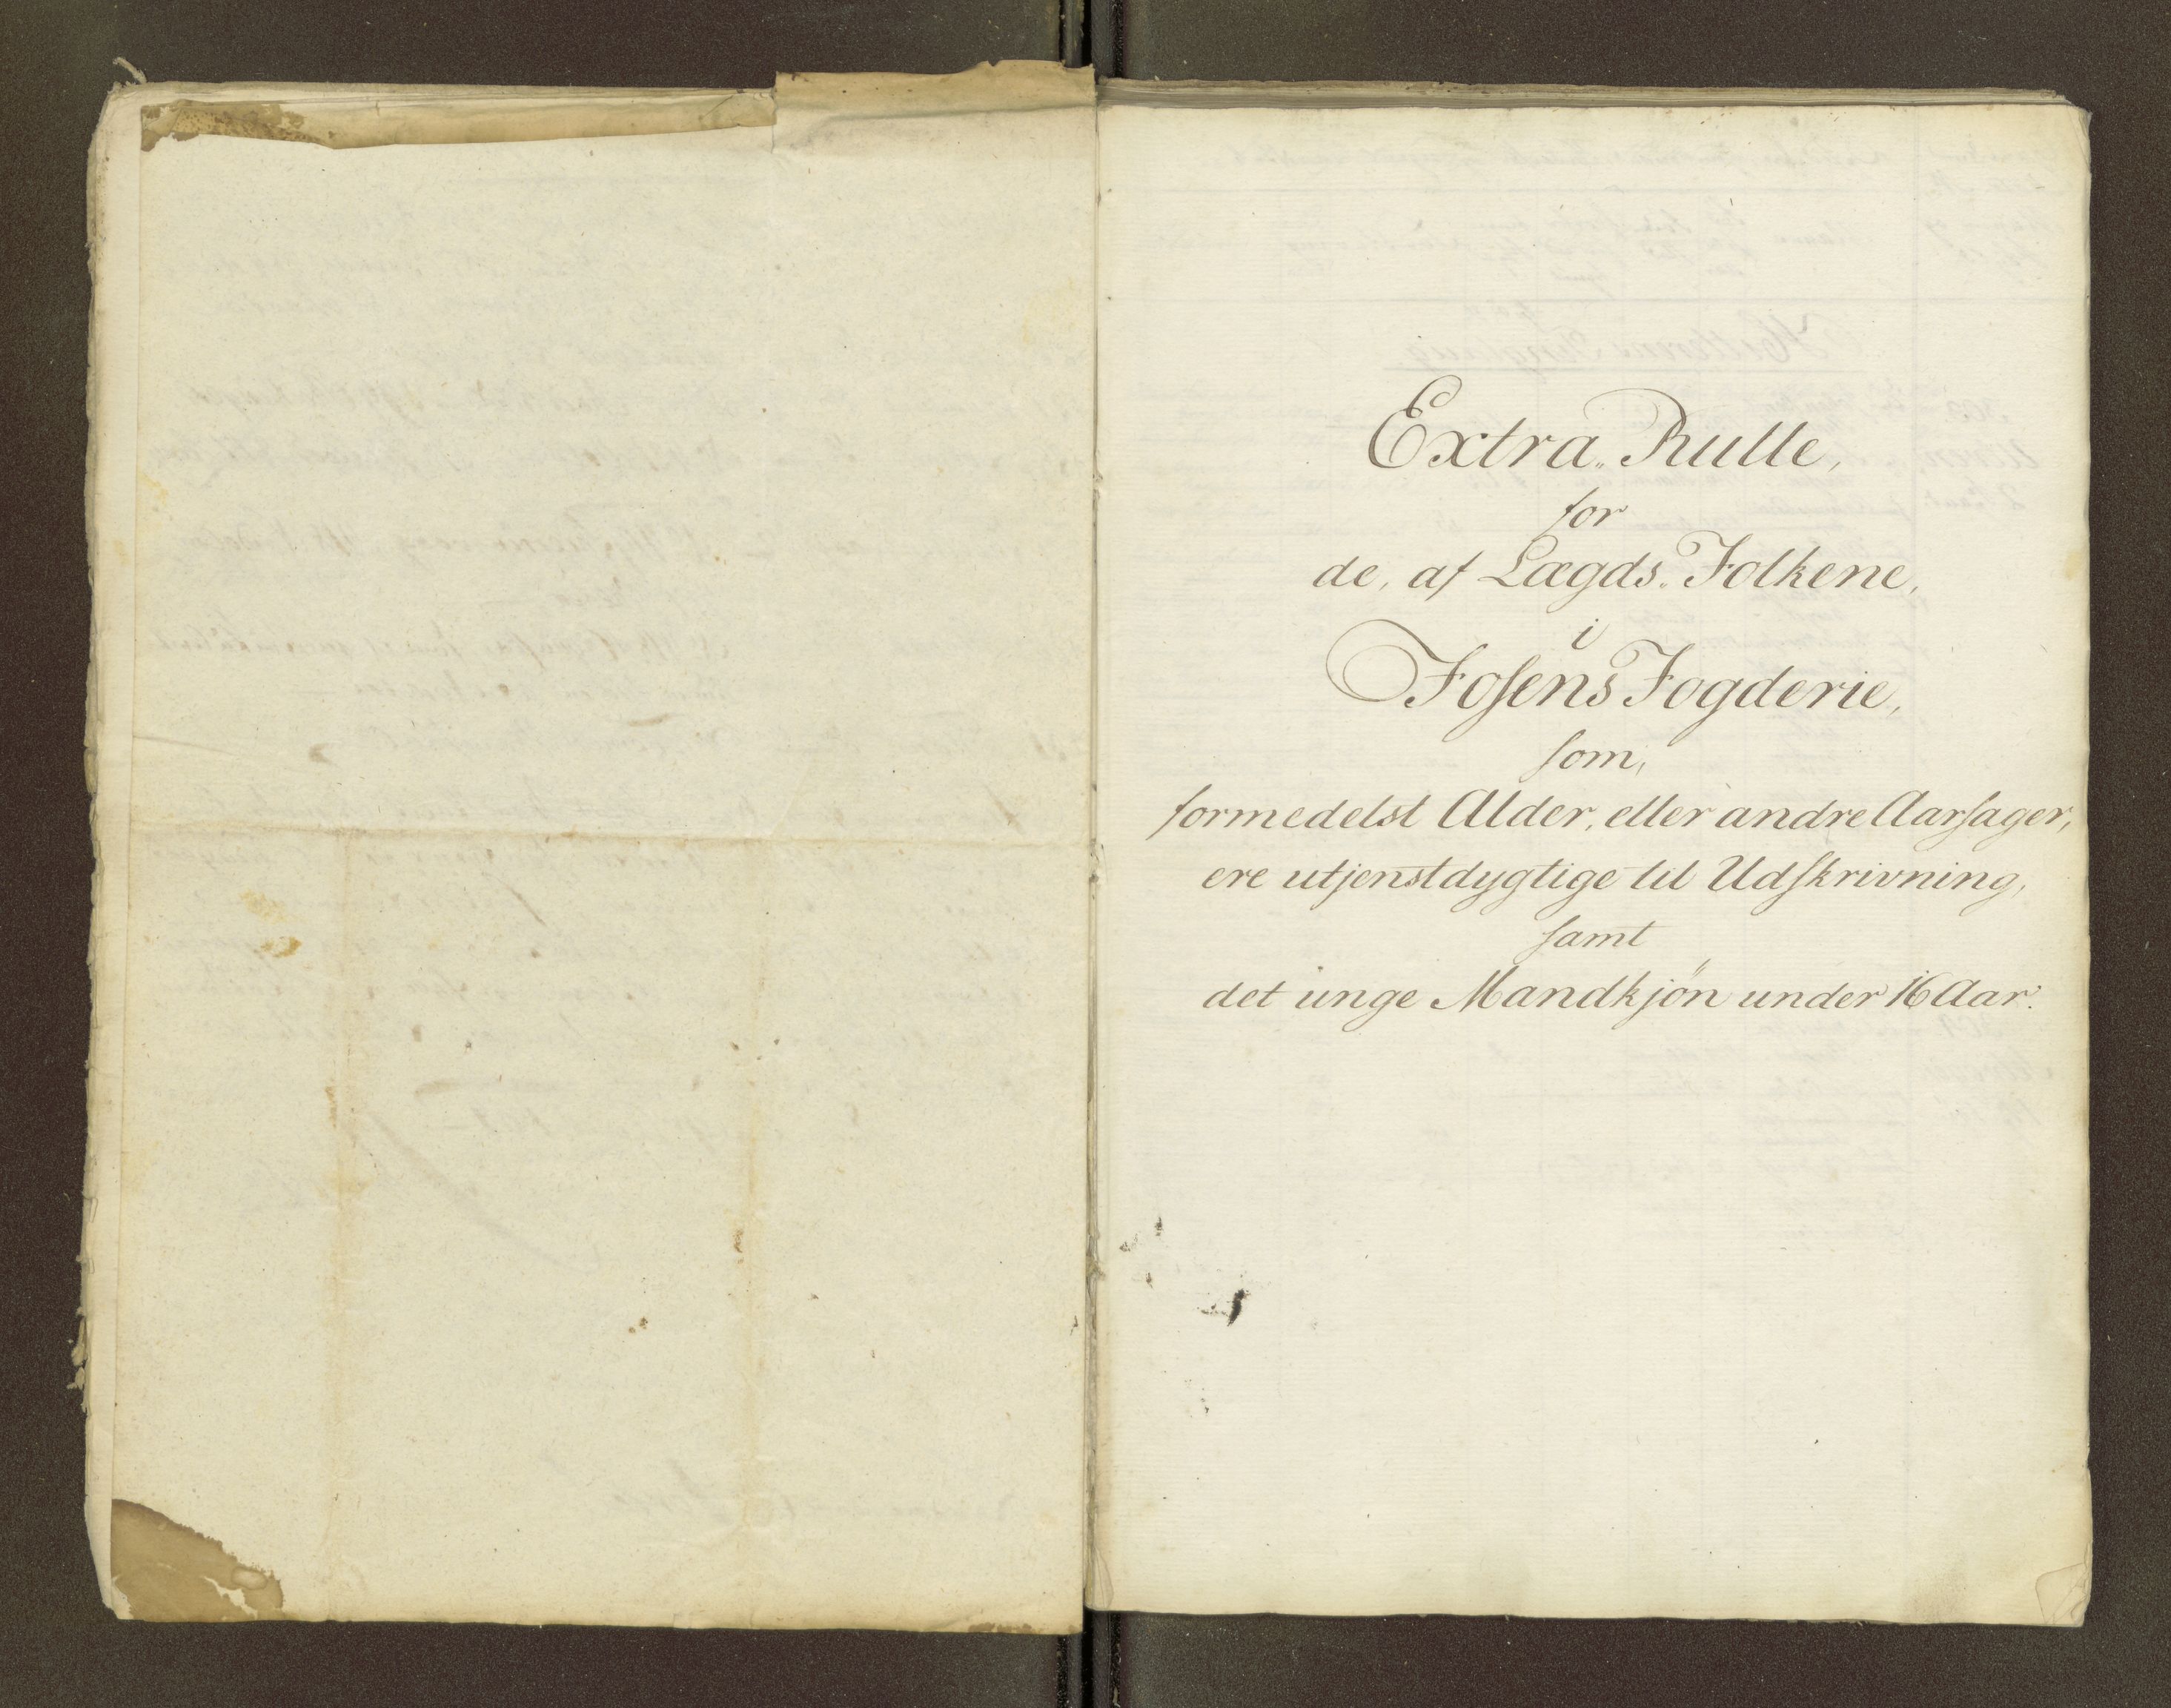 Extra„Rulle,
for
de, af Lægds„Folkene,
i
Fosens Fogderie,
som,
formedelst Alder, eller andre Aarsager,
ere utjenstdygtige til Udskrivning,
samt
det unge Mandkjön under 16 Aar.